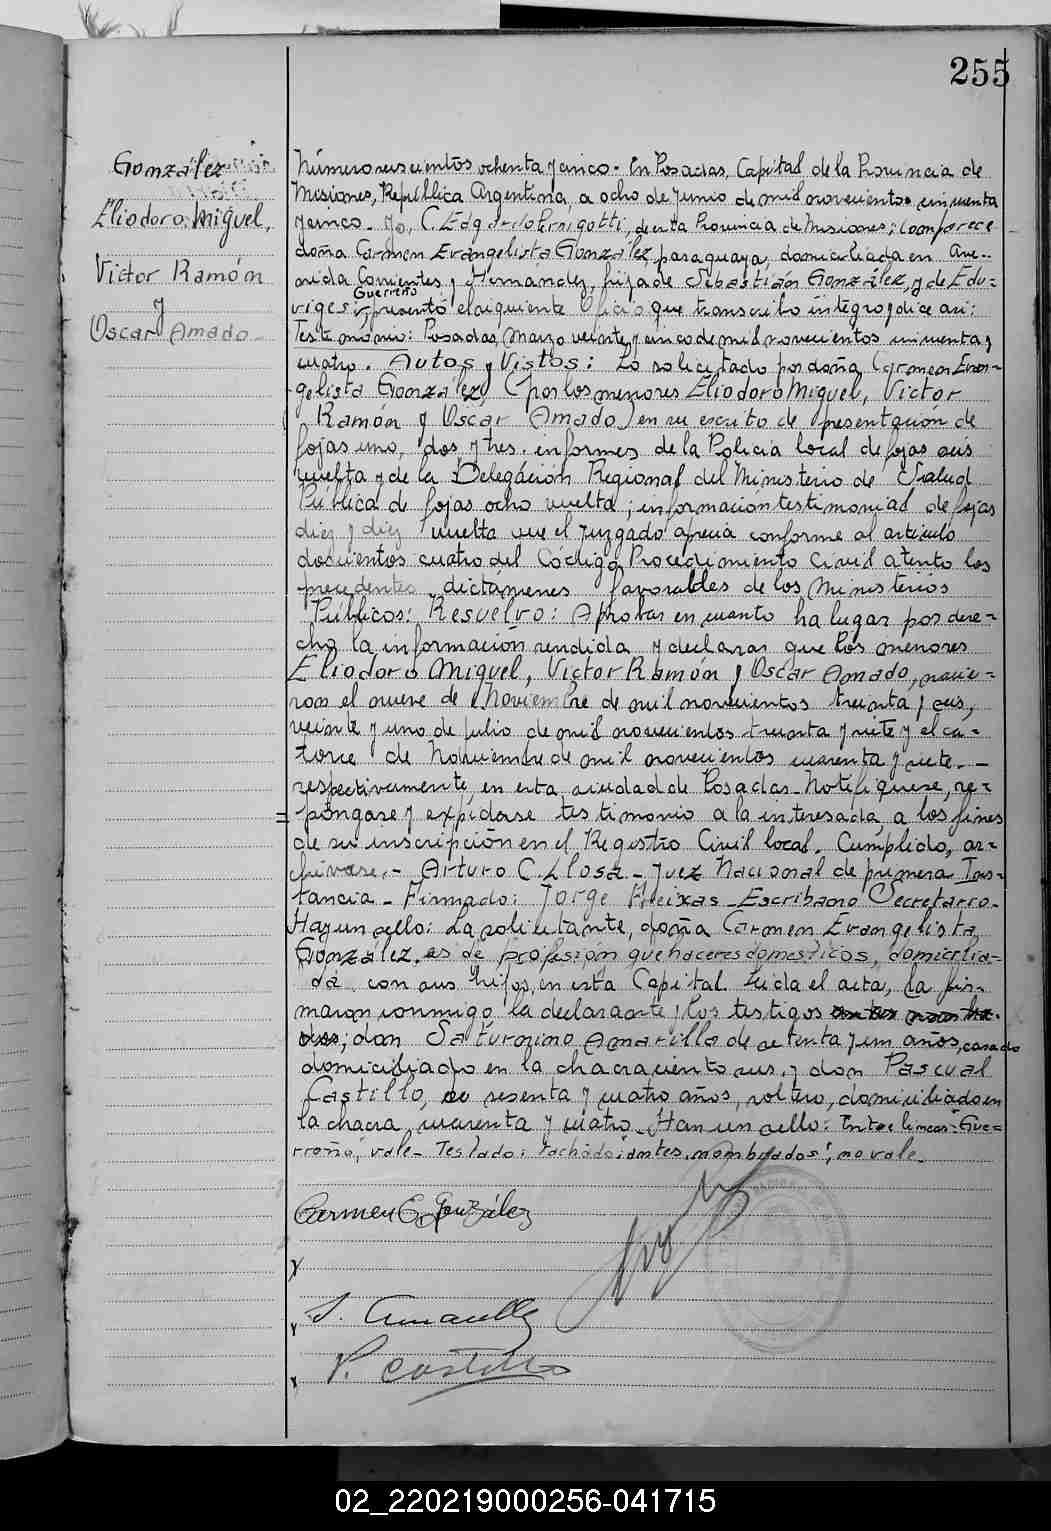 255
González
Eliodoro Miguel,
Victor Ramón
y
Oscar Amado.-
Número seiscientos ochenta y cinco.- En Posadas, Capital de la Provincia de
Misiones, República Argentina, a ocho de Junio de mil novecientos cincuenta
y cinco.- Yo, C. Edgardo de esta Provincia de Misiones; comparece
doña Carmen Evangelista González, paraguaya, domiciliada en Ave-
nida Corrientes y Hernández, hija de Sebastián González, y de Edu-
Guerreño
viges, y presentó el siguiente Oficio que transcribo íntegro y dice así:
Testimonio: Posadas, Marzo veinte y cinco de mil novecientos cincuenta y
cuatro. Autos y Vistos: Lo solicitado por doña Carmen Evan-
gelista González (por los menores Eliodoro Miguel, Victor
Ramón y Oscar Amado) en su escrito de presentación de
fojas uno, dos y tres. informes de la Policia local de fojas seis
vuelta y de la Delegación Regional del Ministerio de Salud
Pública de fojas ocho vuelta; información testimonial de fojas
diez y diez vuelta que el Juzgado aprecia conforme al artículo
doscientos cuatro del Código Procedimiento Civil atento los
precedentes dictamenes favorables de los Ministerios
Públicos: Resuelvo: Aprobar en cuanto ha lugar por dere-
cho la información rendida y declarar que los menores
Eliodoro Miguel, Victor Ramón y Oscar Amado, nacie-
ron el nueve de Noviembre de mil novecientos treinta y seis,
veinte y uno de julio de mil novecientos treinta y siete y el ca-
torce de Noviembre de mil novecientos cuarenta y siete.-
respectivamente, en esta ciudad de Posadas.- Notifiquese, re-
póngase y expídase testimonio a la interesada, a los fines
de su inscripción en el Registro Civil local. Cumplido, ar-
chívese.- Arturo C. Llosa.- Juez Nacional de primera Ins-
tancia.- Firmado: Jorge Freixas.- Escribano Secretario.-
Hay un sello: La solicitante, doña Carmen Evangelista
González, es de profesión quehaceres domesticos, domicilia-
da con sus hijos, en esta Capital. Leida el acta, la fir-
maron conmigo, la declarante y los testigos antes nombra-
dos; don Saturnino Amarilla de setenta y un años, casado
domiciliado en la chacra ciento seis, y don Pascual
Castillo, de sesenta y cuatro años, soltero, domiciliado en
la chacra cuarenta y cuatro. Hay un sello: Entre lineas: Gue-
rreño, vale.- Testado: tachado: "antes nombrados", no vale.
Carmen E. González
S. Amarilla
P. Castillo
02_220219000256-041715